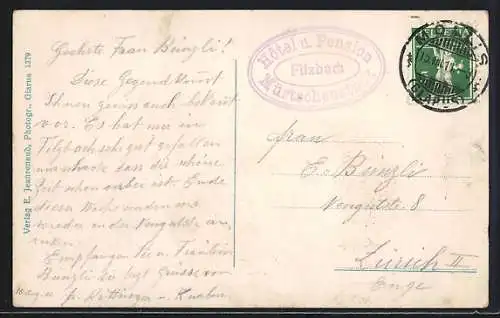 Geehrte Frau Bünzli!
Diese Gegend kommt
Ihnen gewiss auch bekannt
vor. Es hat mir in
Filzbach sehr gut gefallen
schade dass die schöne
Zeit schon vorbei ist. Ende
dieser Woche werden wir
wieder in der Venedigstr. ein-
rücken
Empfangen Sie u. Fräulein
Bünzli die best. Grüsse von
Fr. u. Knaben
Verlag E. Jeanrenaud, Photogr., Glarus 1379
Hôtel u. Pension
Filzbach
Mürtschenstock
(GLARUS)
Frau
E. Bünzli
8
Zürich II
Enge